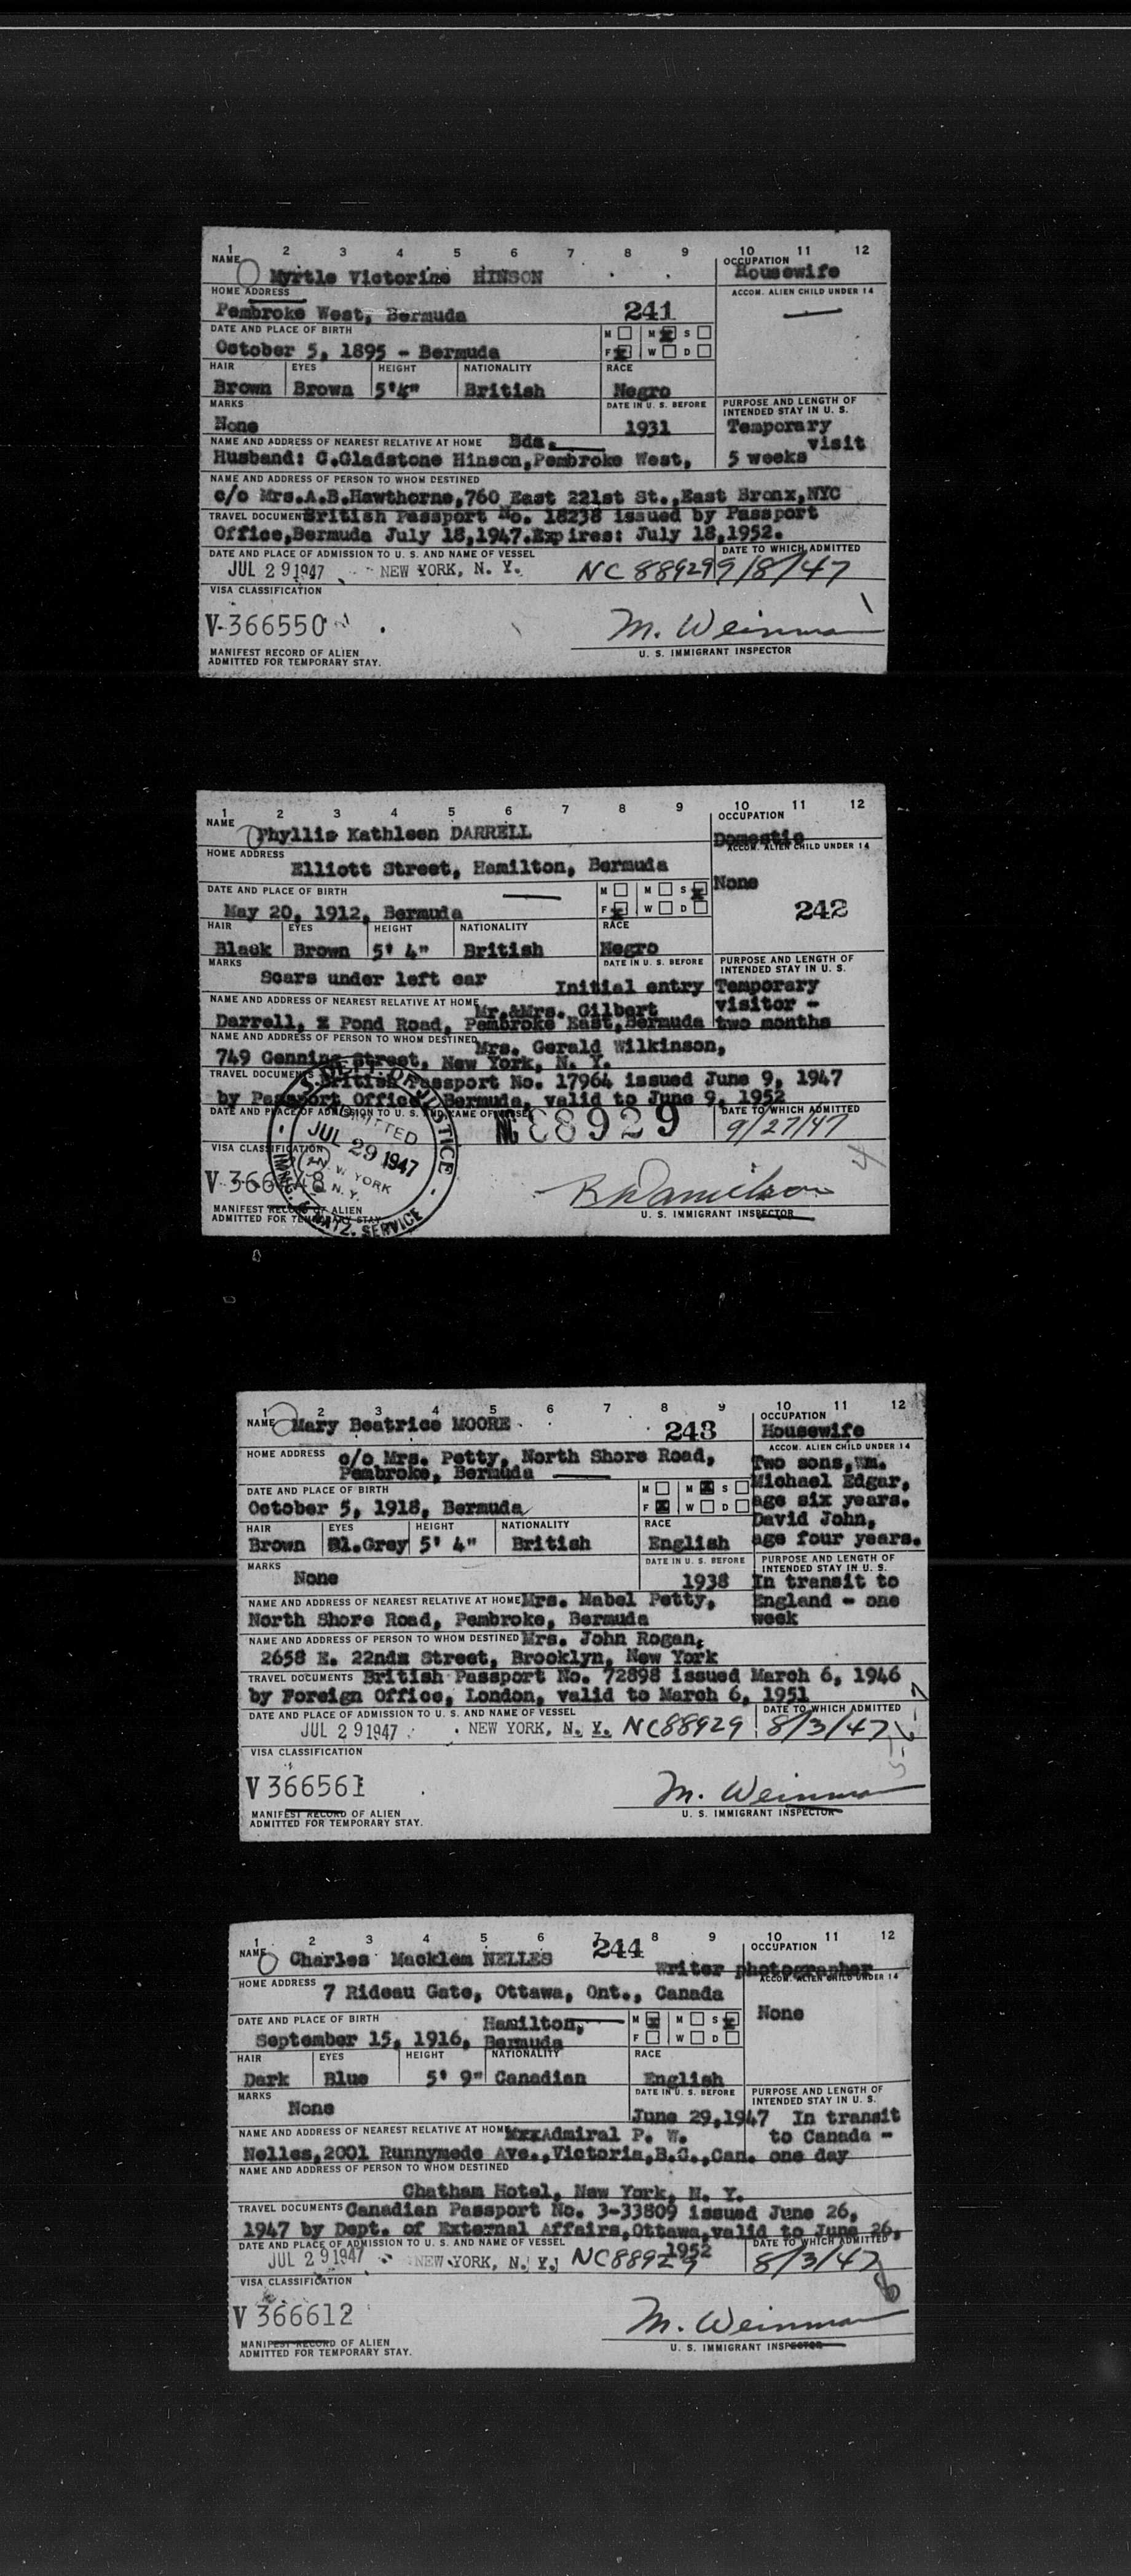 1 2 3 4 5 6 7 8 9 10 11 12
NAME Myrtle Victorine HINSON
OCCUPATION Housewife
HOME ADDRESS
ACCOM. ALIEN CHILD UNDER 14
Pembroke West, Bermuda 241
DATE AND PLACE OF BIRTH M M S
October 5, 1895 - Bermuda F W D
HAIR EYES HEIGHT NATIONALITY RACE
Brown Brown 5'4" British Negro
MARKS DATE IN U. S. BEFORE PURPOSE AND LENGTH OF INTENDED STAY IN U. S.
None 1931 Temporary visit
NAME AND ADDRESS OF NEAREST RELATIVE AT HOME Bda.
Husband: C.Gladstone Hinson,Pembroke West, 5 weeks
NAME AND ADDRESS OF PERSON TO WHOM DESTINED
c/o Mrs.A.B.Hawthorne,760 East 221st St.,East Bronx,NYC
TRAVEL DOCUMENTS British Passport No. 18238 issued by Passport
Office,Bermuda July 18,1947.Expires: July 18,1952.
DATE AND PLACE OF ADMISSION TO U. S. AND NAME OF VESSEL DATE TO WHICH ADMITTED
JUL 29 1947 NEW YORK, N. Y. NC 88929 9/8/47
VISA CLASSIFICATION
V-366550
M. Weinman
MANIFEST RECORD OF ALIEN
ADMITTED FOR TEMPORARY STAY.
U. S. IMMIGRANT INSPECTOR
1 2 3 4 5 6 7 8 9 10 11 12
NAME Phyllis Kathleen DARRELL
OCCUPATION
Domestic
HOME ADDRESS
ACCOM. ALIEN CHILD UNDER 14
Elliott Street, Hamilton, Bermuda
DATE AND PLACE OF BIRTH M M S None
May 20, 1912, Bermuda F W D 242
HAIR EYES HEIGHT NATIONALITY RACE
Black Brown 5' 4" British Negro
MARKS DATE IN U. S. BEFORE PURPOSE AND LENGTH OF INTENDED STAY IN U. S.
Scars under left ear Initial entry Temporary
NAME AND ADDRESS OF NEAREST RELATIVE AT HOME Mr.&Mrs. Gilbert visitor -
Darrell, X Pond Road, Pembroke East,Bermuda two months
NAME AND ADDRESS OF PERSON TO WHOM DESTINED Mrs. Gerald Wilkinson,
749 Genning Street, New York, N. Y.
TRAVEL DOCUMENTS British Passport No. 17964 issued June 9, 1947
by Passport Office, Bermuda, valid to June 9, 1952
DATE AND PLACE OF ADMISSION TO U. S. AND NAME OF VESSEL DATE TO WHICH ADMITTED
NC 88929 9/27/47
U.S. DEPT. OF JUSTICE
ADMITTED
JUL 29 1947
NEW YORK
N. Y.
IMMIG. & NATZ. SERVICE
VISA CLASSIFICATION
MANIFEST RECORD OF ALIEN
ADMITTED FOR TEMPORARY STAY
U. S. IMMIGRANT INSPECTOR
1 2 3 4 5 6 7 8 9 10 11 12
NAME Mary Beatrice MOORE 243
OCCUPATION
Housewife
HOME ADDRESS c/o Mrs. Petty, North Shore Road,
Pembroke, Bermuda
ACCOM. ALIEN CHILD UNDER 14
Two sons,Wm.
Michael Edgar,
age six years.
David John,
age four years.
DATE AND PLACE OF BIRTH M M S
October 5, 1918, Bermuda F W D
HAIR EYES HEIGHT NATIONALITY RACE
Brown Bl.Grey 5' 4" British English
MARKS DATE IN U. S. BEFORE PURPOSE AND LENGTH OF INTENDED STAY IN U. S.
None 1938 In transit to
NAME AND ADDRESS OF NEAREST RELATIVE AT HOME Mrs. Mabel Petty, England - one
North Shore Road, Pembroke, Bermuda week
NAME AND ADDRESS OF PERSON TO WHOM DESTINED Mrs. John Rogan,
2658 E. 22nd Street, Brooklyn, New York
TRAVEL DOCUMENTS British Passport No. 72898 issued March 6, 1946
by Foreign Office, London, valid to March 6, 1951
DATE AND PLACE OF ADMISSION TO U. S. AND NAME OF VESSEL DATE TO WHICH ADMITTED
JUL 29 1947 NEW YORK, N. Y. NC88929 8/3/47
VISA CLASSIFICATION
V 366561
M. Weinman
MANIFEST RECORD OF ALIEN
ADMITTED FOR TEMPORARY STAY.
U. S. IMMIGRANT INSPECTOR
1 2 3 4 5 6 7 8 9 10 11 12
NAME Charles Macklem NELLES 244
OCCUPATION
Writer photographer
HOME ADDRESS 7 Rideau Gate, Ottawa, Ont., Canada
ACCOM. ALIEN CHILD UNDER 14
None
DATE AND PLACE OF BIRTH Hamilton, M M S
September 15, 1916, Bermuda F W D
HAIR EYES HEIGHT NATIONALITY RACE
Dark Blue 5' 9" Canadian English
MARKS DATE IN U. S. BEFORE PURPOSE AND LENGTH OF INTENDED STAY IN U. S.
None June 29,1947 In transit
NAME AND ADDRESS OF NEAREST RELATIVE AT HOME Admiral P. W. to Canada -
Nelles,2001 Runnymede Ave.,Victoria,B.C.,Can. one day
NAME AND ADDRESS OF PERSON TO WHOM DESTINED
Chatham Hotel, New York, N. Y.
TRAVEL DOCUMENTS Canadian Passport No. 3-33809 issued June 26,
1947 by Dept. of External Affairs,Ottawa,valid to June 26,
1952
DATE AND PLACE OF ADMISSION TO U. S. AND NAME OF VESSEL DATE TO WHICH ADMITTED
JUL 29 1947 NEW YORK, N. Y. NC88929 8/3/47
VISA CLASSIFICATION
V 366612
M. Weinman
MANIFEST RECORD OF ALIEN
ADMITTED FOR TEMPORARY STAY.
U. S. IMMIGRANT INSPECTOR